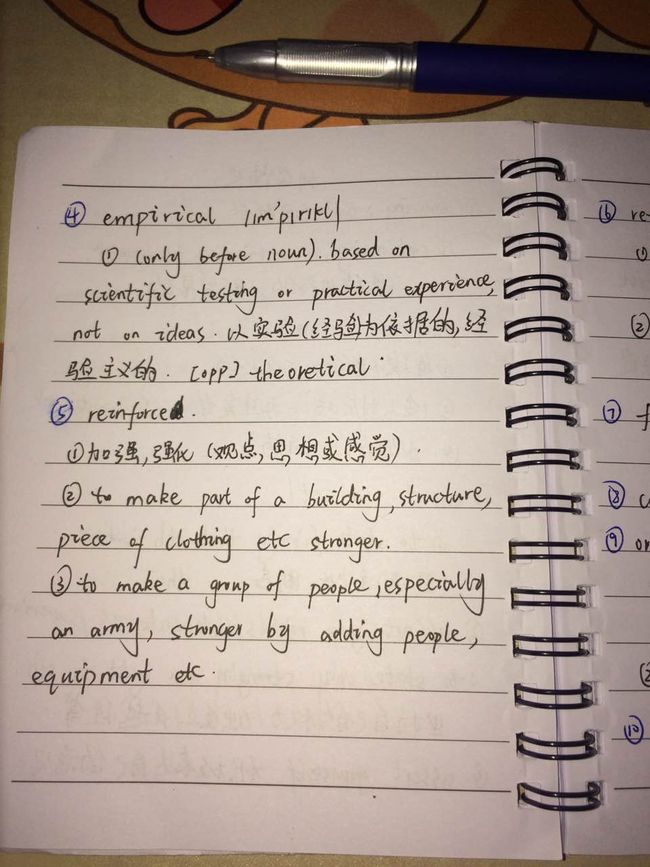 ④ empirical /ɪm'pɪrɪkl/
① (only before noun). based on
scientific testing or practical experience,
not on ideas. 以实验(经验)为依据的,经
验主义的. [opp] theoretical.
⑤ reinforce
①加强,强化 (观点,思想或感觉).
② to make part of a building, structure,
piece of clothing etc stronger.
③ to make a group of people, especially
an army, stronger by adding people,
equipment etc.
⑥ re
①
②
⑦ f
⑧
⑨ or
⑩